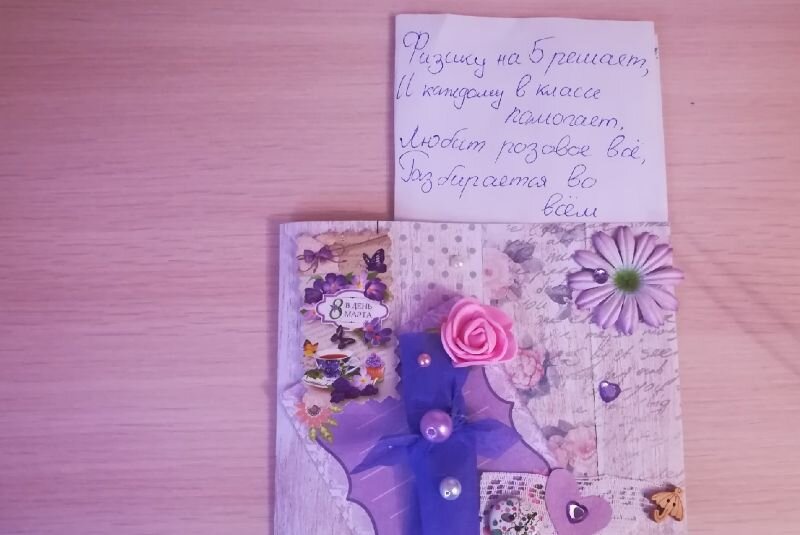 Физику на 5 решает,
И каждому в классе
помогает,
Любит розовое всё,
Разбирается во
всём
8 В ДЕНЬ
МАРТА